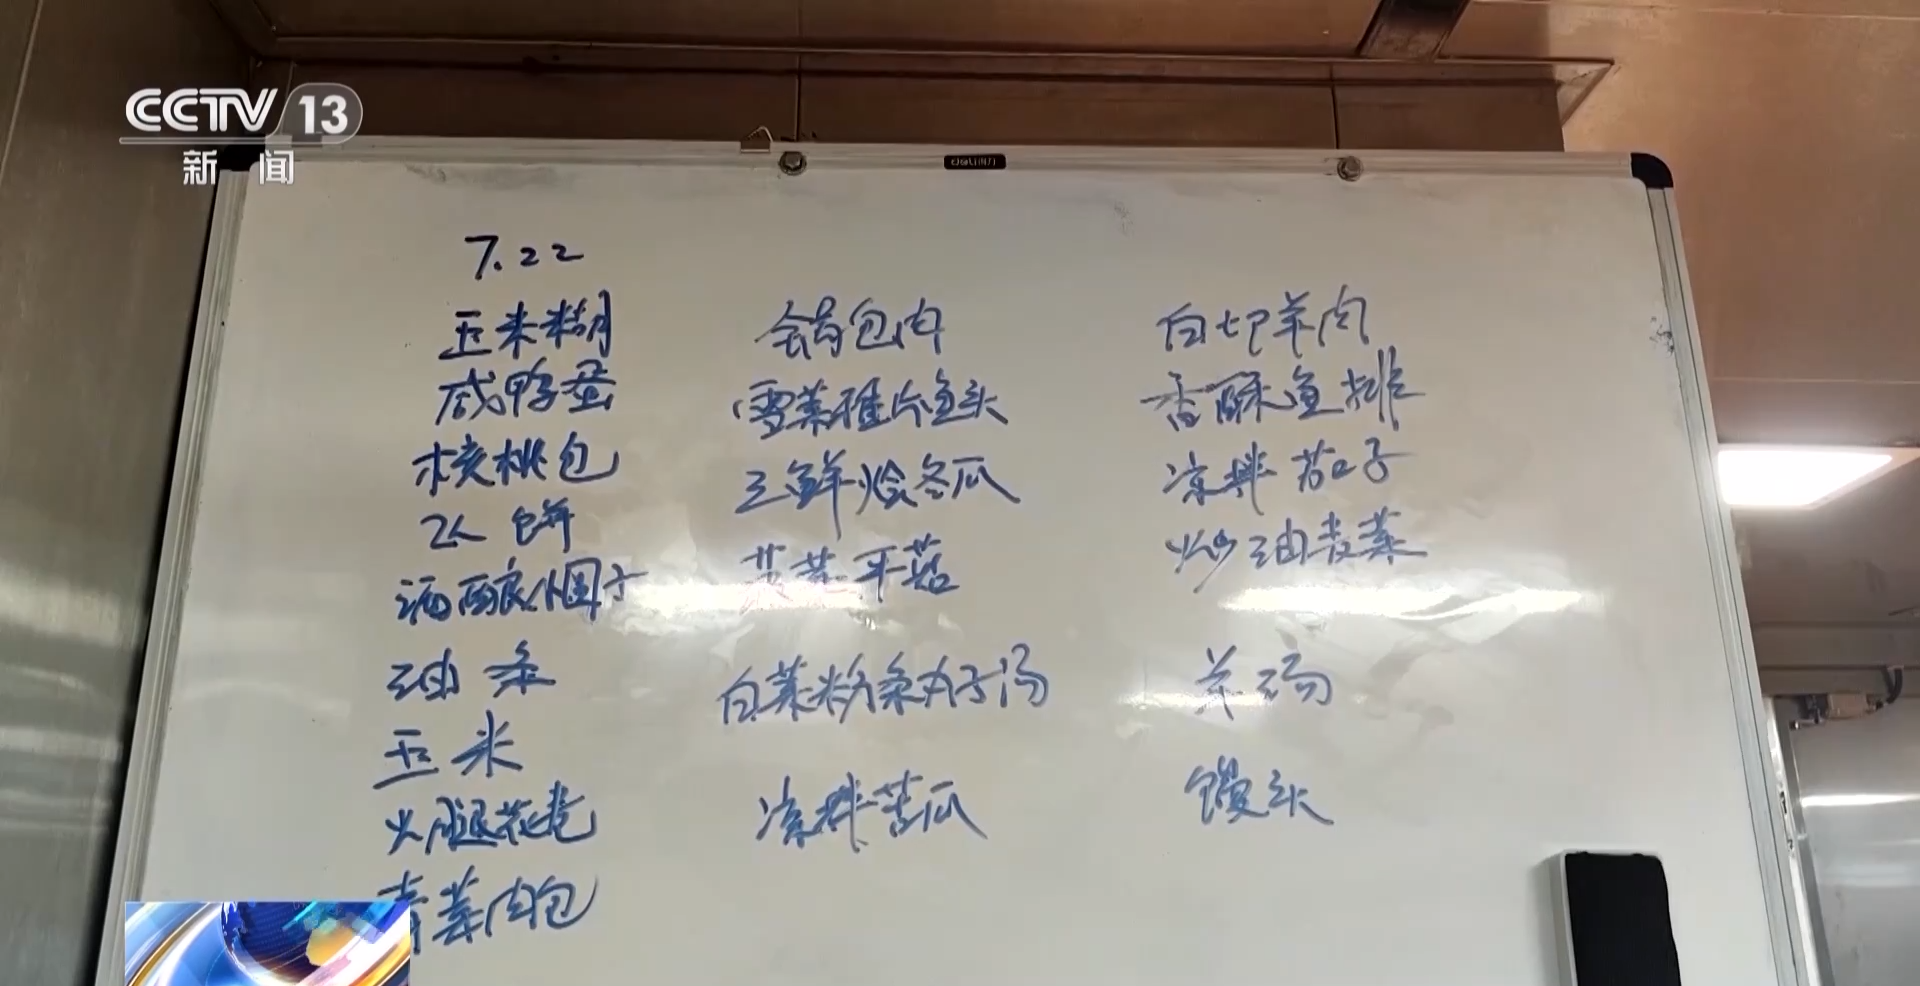 CCTV 13
新闻
deli得力
7.22
玉米糊
咸鸭蛋
核桃包
饼
酒酿小圆子
油条
玉米
火腿花卷
青菜肉包
锅包肉
雪菜雅片鱼头
三鲜烩冬瓜
芹菜平菇
白菜粉条丸子汤
凉拌苦瓜
白切羊肉
香酥鱼排
凉拌茄子
炒油青菜
羊汤
馒头